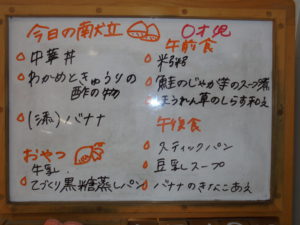 今日の献立
中華丼
わかめときゅうりの
酢の物
(添)バナナ
おやつ
牛乳
てづくり黒糖蒸しパン
0才児
午前食
米粥
鮭のじゃが芋のスープ煮
ほうれん草のしらす和え
午後食
スティックパン
豆乳スープ
バナナのきなこあえ